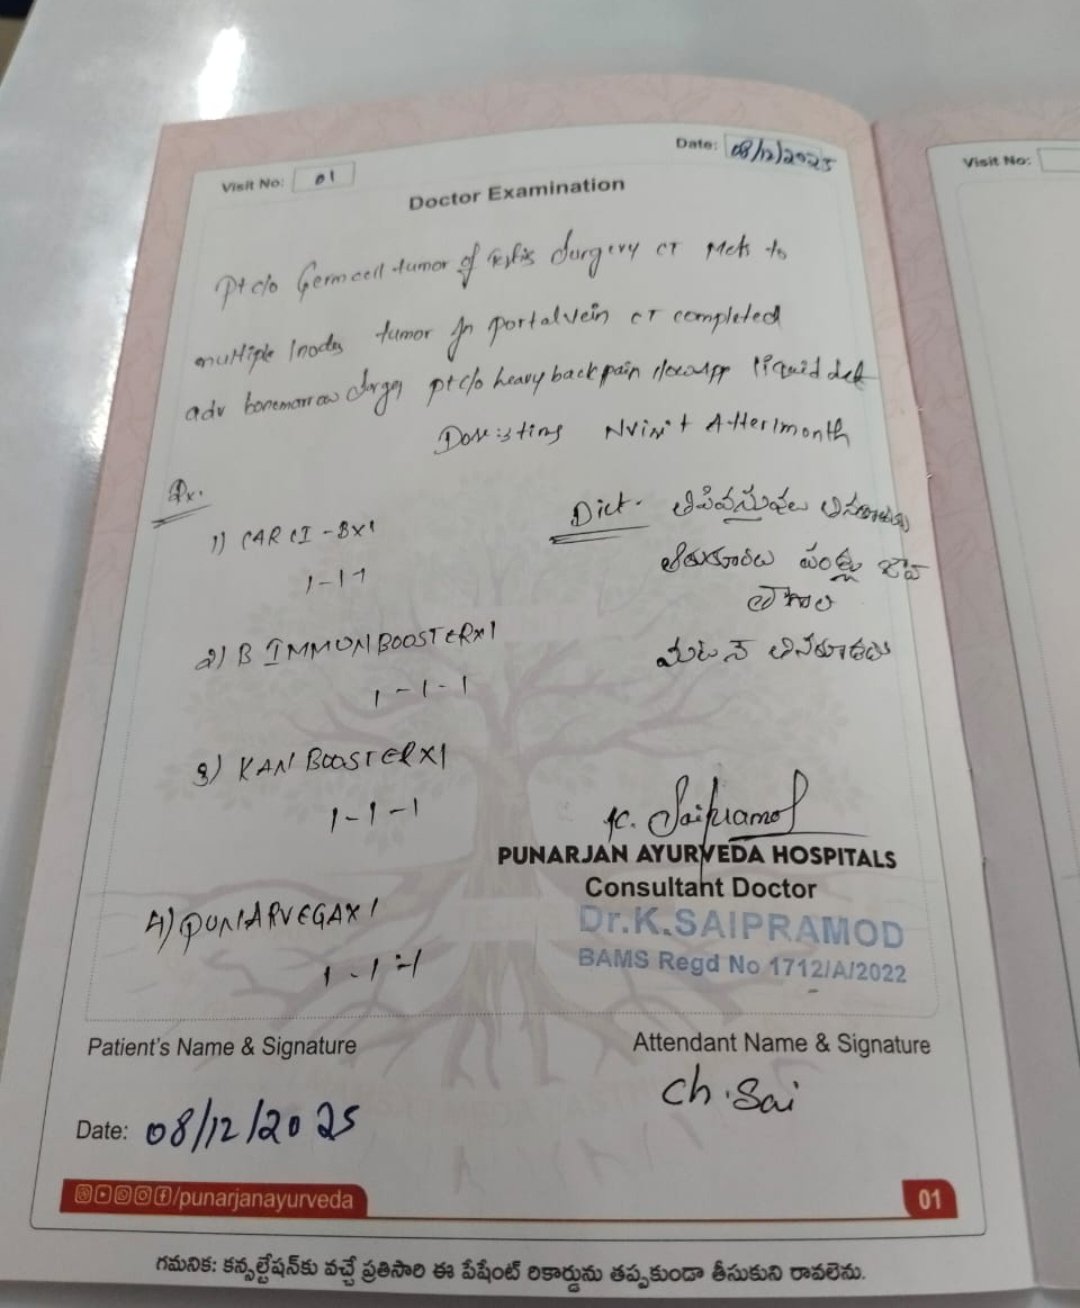 Visit No: 01
Date: 08/12/2025
Visit No:
Doctor Examination
Pt c/o Germ cell tumor of testis Surgery CT Mets to
multiple lnodes tumor In portalvein CT completed
adv bonemarrow Surgery pt c/o heavy back pain liquid diet
Nvisit After 1 month
Rx.
1) CARCI - 8x1
1-1-1
2) B IMMUNBOOSTERx1
1-1-1
3) KAN BOOSTERx1
1-1-1
4) PUNARVEGAx1
1-1-1
Diet.
పండ్లు
K. Saipramod
PUNARJAN AYURVEDA HOSPITALS
Consultant Doctor
Dr.K.SAIPRAMOD
BAMS Regd No 1712/A/2022
Patient's Name & Signature
Attendant Name & Signature
Ch. Sai
Date: 08/12/2025
/punarjanayurveda
01
గమనిక: కన్సల్టేషన్‌కు వచ్చే ప్రతిసారి ఈ పేషేంట్ రికార్డును తప్పకుండా తీసుకుని రావలెను.